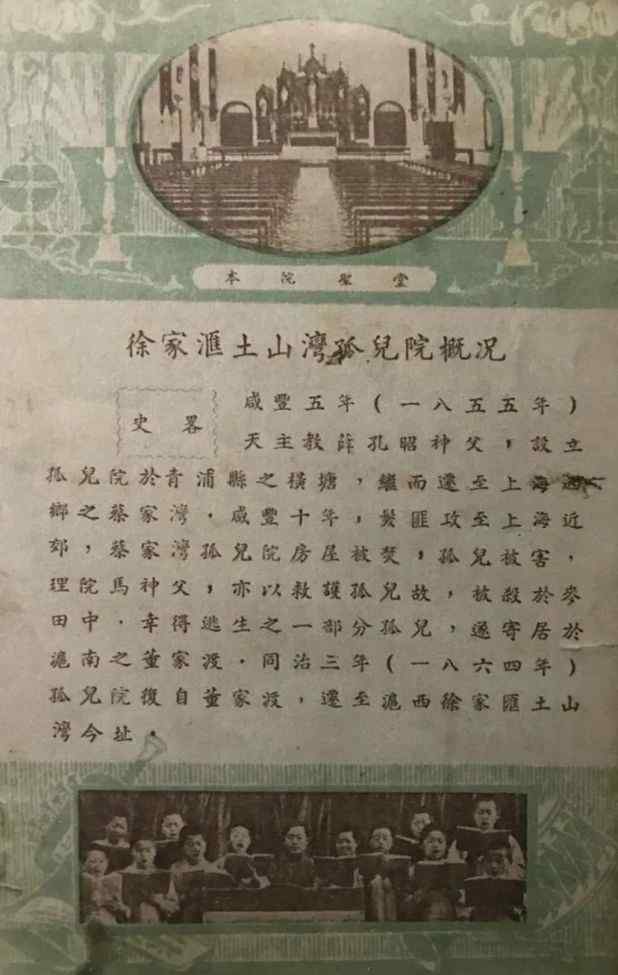 本院聖堂
徐家滙土山灣孤兒院概况
史畧
咸豐五年(一八五五年)
天主教薛孔昭神父，設立
孤兒院於青浦縣之橫塘，繼而遷至上海
鄉之蔡家灣．咸豐十年，髮匪攻至上海近
郊，蔡家灣孤兒院房屋被焚，孤兒被害．
理院馬神父，亦以救護孤兒故，被殺於麥
田中．幸得逃生之一部分孤兒，遂寄居於
滬南之董家渡．同治三年(一八六四年)
孤兒院復自董家渡，遷至滬西徐家匯土山
灣今址．